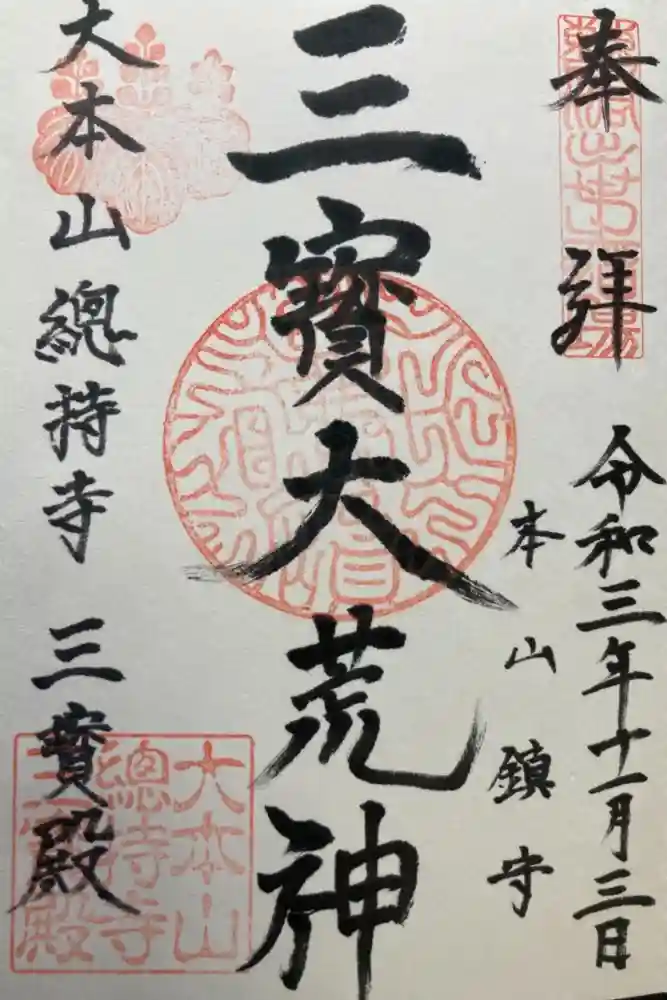 奉拜
令和三年十一月三日
本山鎮守
三寳大荒神
大本山總持寺 三寳殿
大本山
總持寺
三寳殿